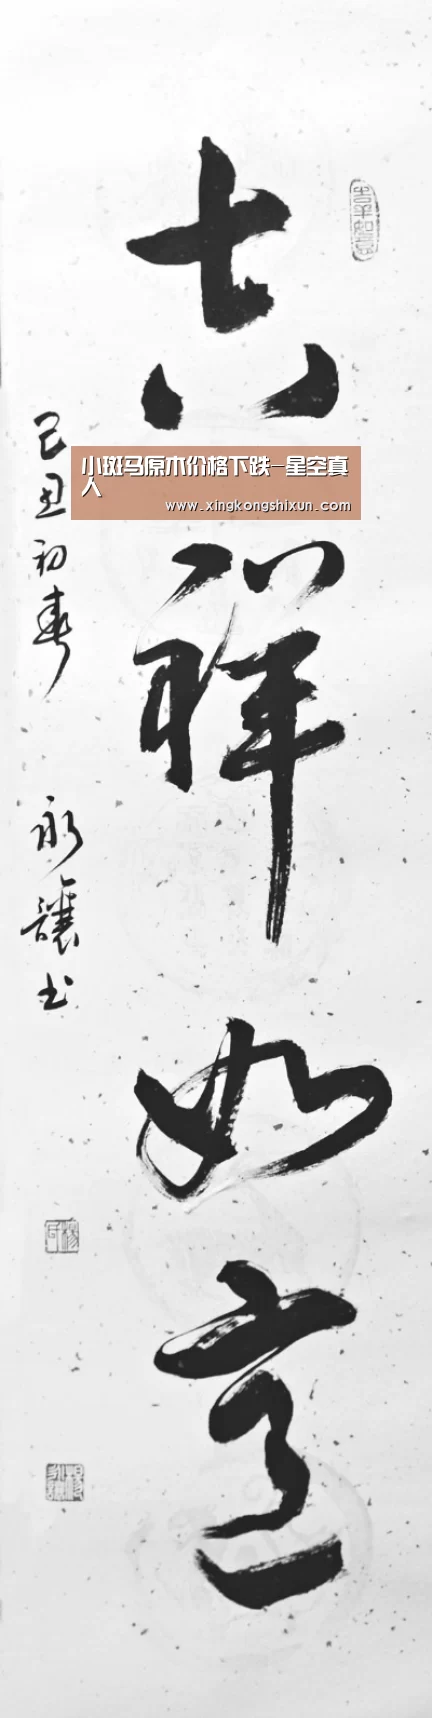 吉祥如意
己丑初春 永讓书
小斑马原木价格下跌-星空真
人
www.xingkongshixun.com
吉祥如意